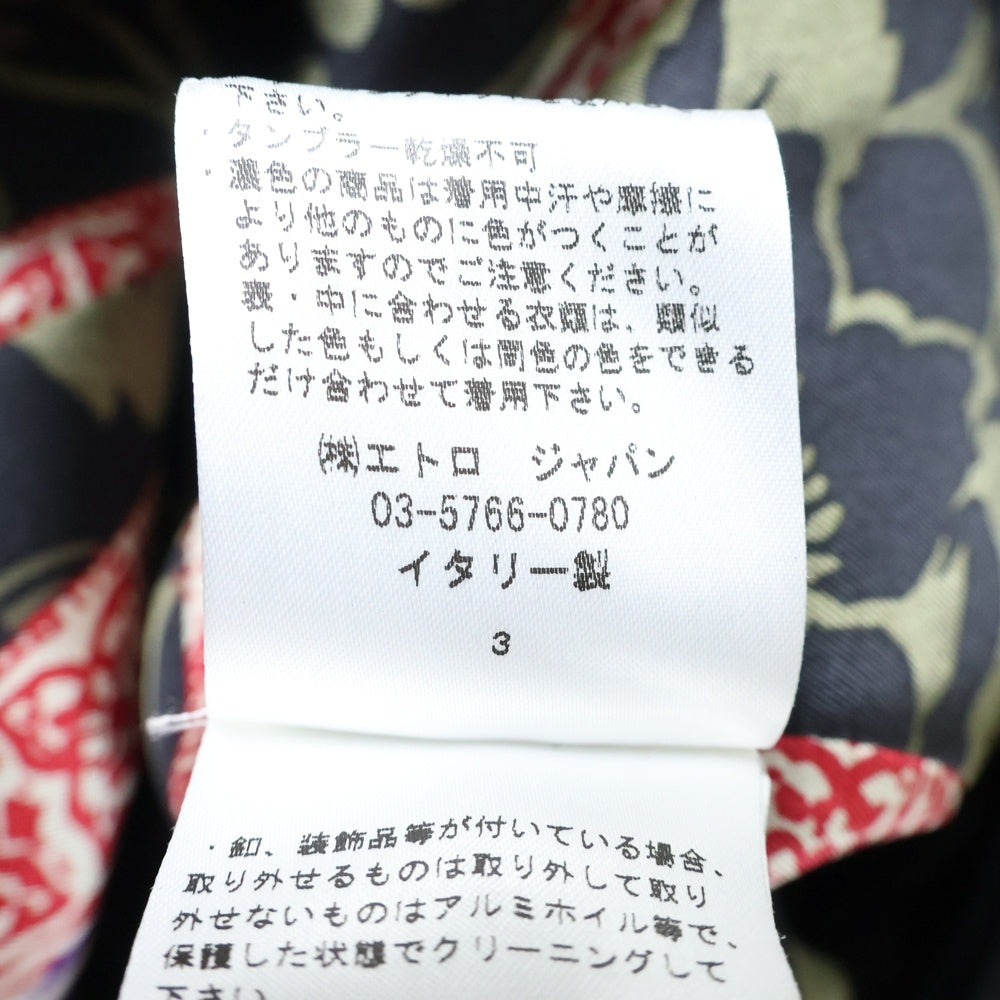 下さい。
・タンブラー乾燥不可
・濃色の商品は着用中汗や摩擦に
より他のものに色がつくことが
ありますのでご注意ください。
裏・中に合わせる衣類は、類似
した色もしくは同色の色をできる
だけ合わせて着用下さい。
㈱エトロ ジャパン
03-5766-0780
イタリー製
3
・釦、装飾品等が付いている場合、
取り外せるものは取り外して取り
外せないものはアルミホイル等で、
保護した状態でクリーニングして
下さい